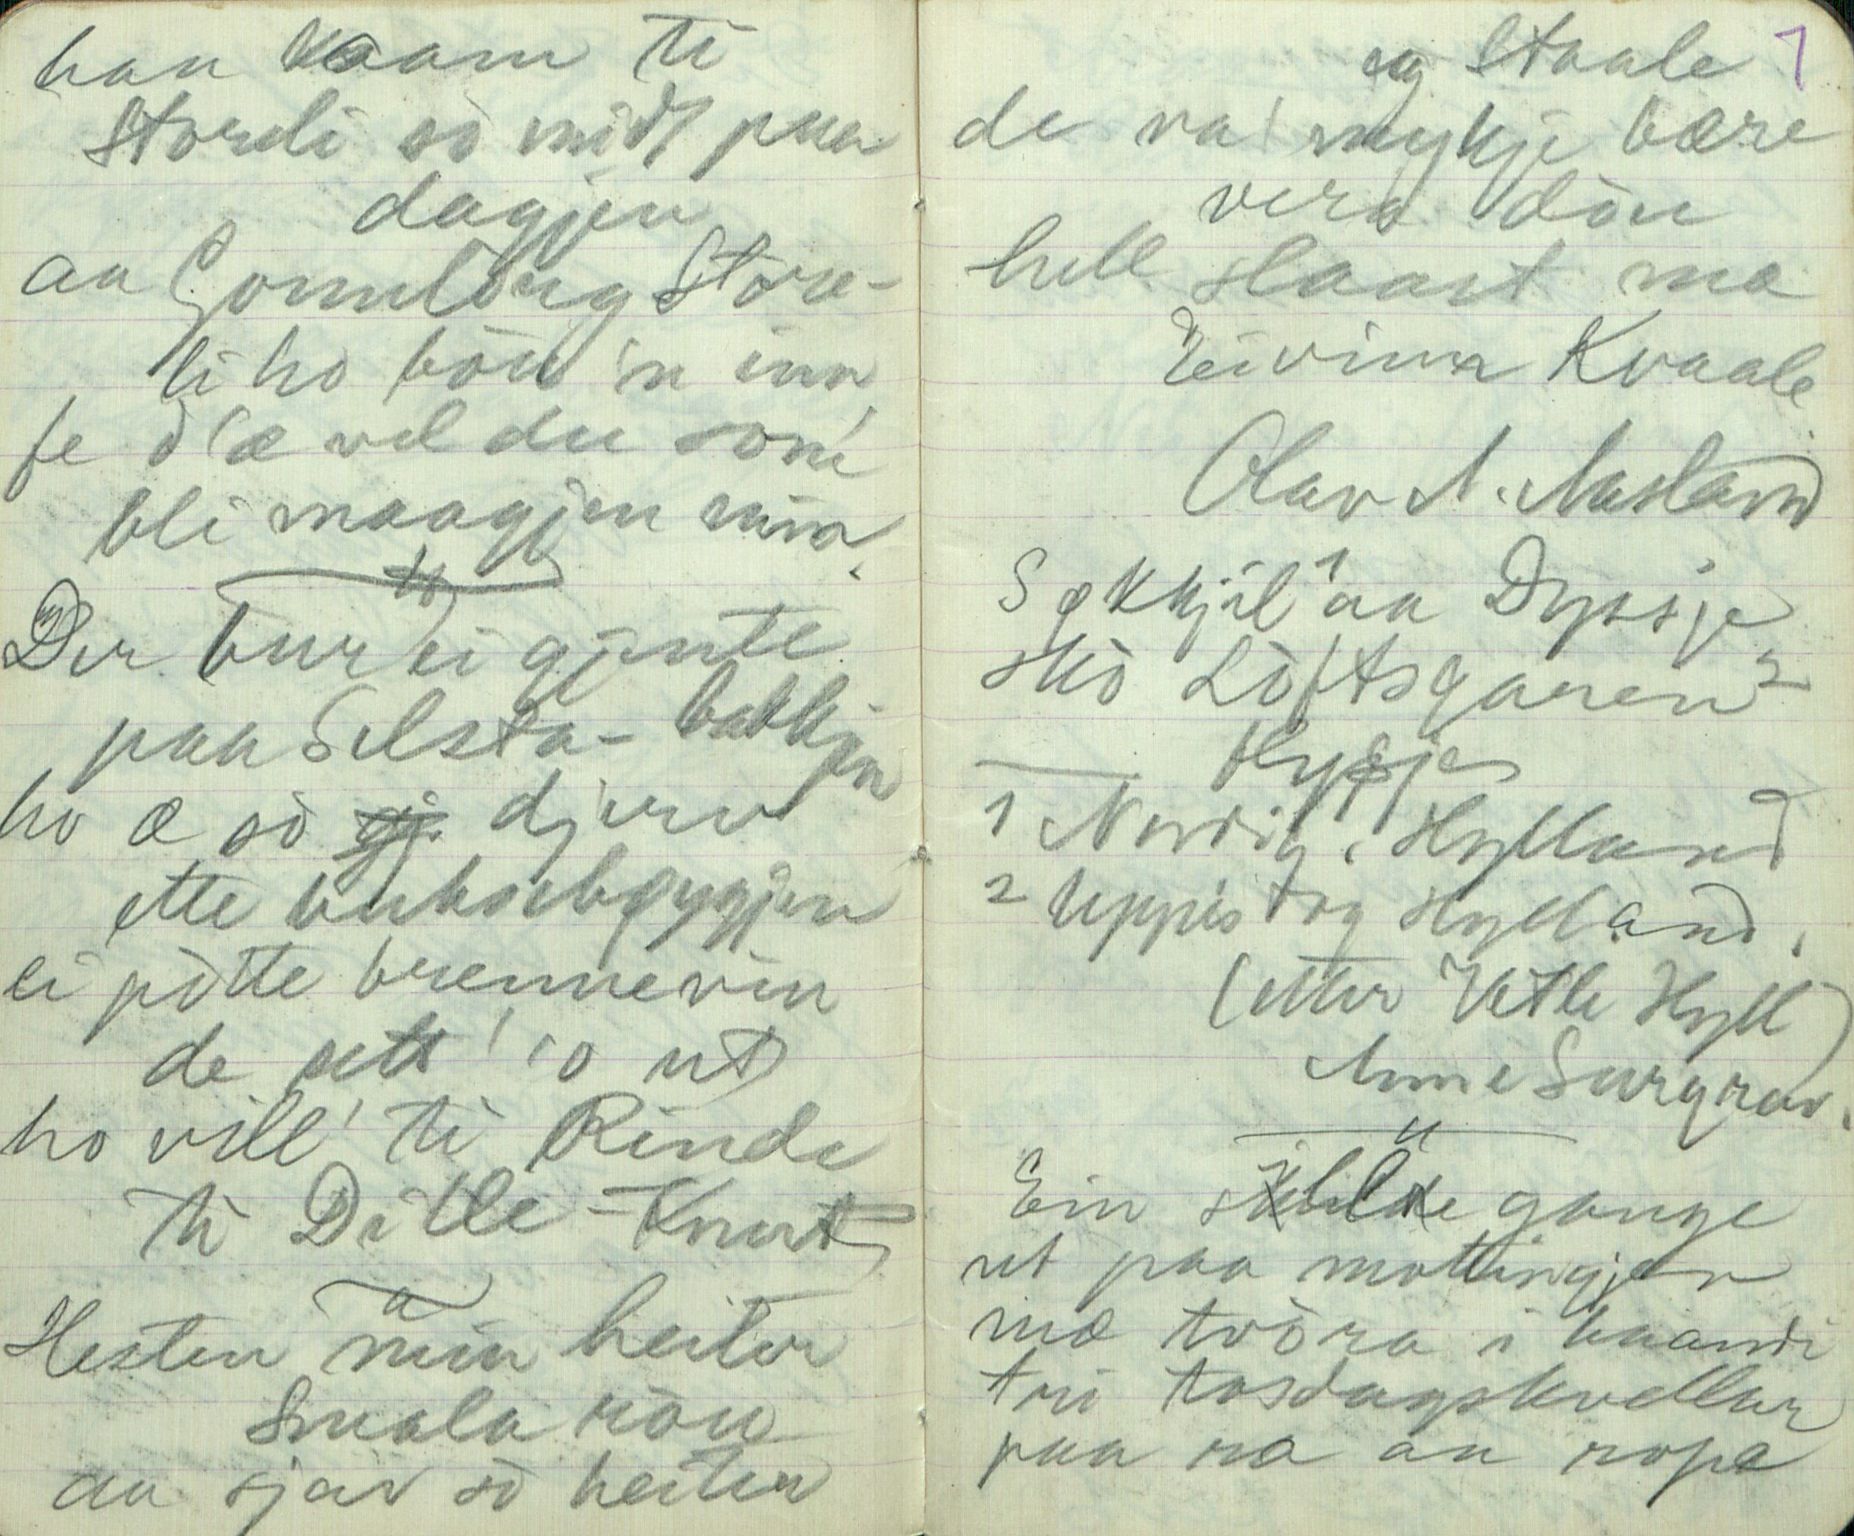 han kaam ti
Stordli so midt paa
dagjen
aa Gonnlaug Store-
li ho bòu 'n inn
fe d'æ vel du som
bli maagjen min.
Der bur ei gjente
paa Silsta-bakkjen
ho æ so gj. djerv
ette buksebøygjen
ei potte brennevin
de sett' 'o ut
ho vill' ti Rinde
ti Ditle-Knut
Hesten min heiter
Smala ròu
aa sjav so heiter
eg Staale
de va' mykje bære
vera dòu
hell slaast mæ
Eivinn Kvaale
Olav N. Aasland
Søkkjil¹ aa Dyssje
sko Loftsgaren²
Hyssje
1 Nordig. Hylland
2 Uppistog Hylland.
(etter Vetle Hyll)
Anne Surgrav.
Ein skulde gange
ut paa mottingjen
mæ tvòra i haandi
tri tosdagskvellar
paa ra aa ropa